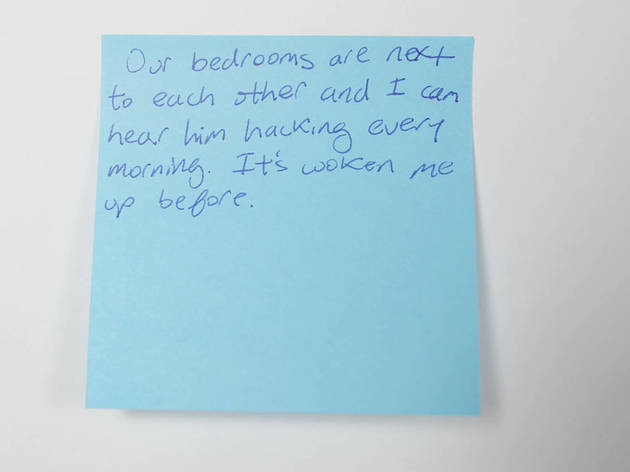 Our bedrooms are next
to each other and I can
hear him hacking every
morning. It's woken me
up before.